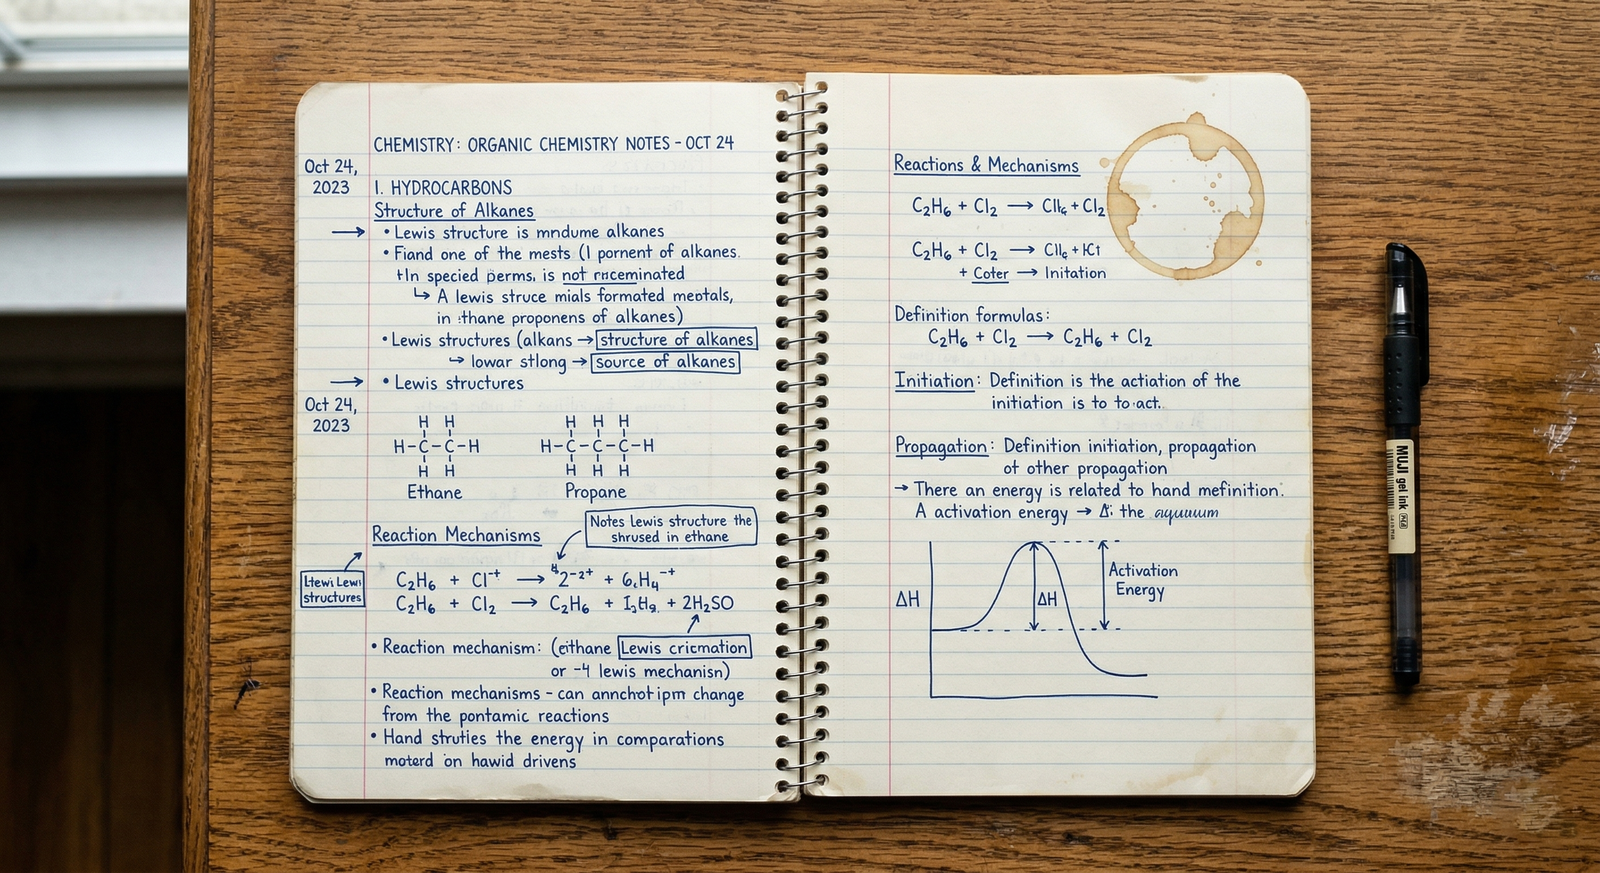 CHEMISTRY: ORGANIC CHEMISTRY NOTES - OCT 24
Oct 24,
2023
I. HYDROCARBONS
Structure of Alkanes
→ • Lewis structure is mndume alkanes
• Fiand one of the mests (1 pornent of alkanes.
In specied perms, is not
↳ A lewis struce mials formated meotals,
in thane proponens of alkanes)
• Lewis structures (alkans → structure of alkanes
↳ lowar stlong → source of alkanes
→ • Lewis structures
Oct 24,
2023
H H
H-C-C-H
H H
Ethane
H H H
H-C-C-C-H
H H H
Propane
Notes Lewis structure the
shrused in ethane
Reaction Mechanisms
Lewi
structures
C₂H₆ + Cl⁻⁺ → 2⁻²⁺ + H₄⁻⁺
C₂H₆ + Cl₂ → C₂H₆ + + 2H₂SO
• Reaction mechanism: (eithane Lewis
or -4 lewis mechanisn)
• Reaction mechanisms - can change
from the pontamic reactions
• Hand struties the energy in comparations
moterd on hawid drivens
Reactions & Mechanisms
C₂H₆ + Cl₂ → + Cl₂
C₂H₆ + Cl₂ →
+ Coter → Initation
Definition formulas:
C₂H₆ + Cl₂ → C₂H₆ + Cl₂
Initiation: Definition is the actiation of the
initiation is to to act.
Propagation: Definition initiation, propagation
of other propagation
→ There an energy is related to hand mefinition.
A activation energy → Δ: the
ΔH
ΔH
Activation
Energy
MUJI gel ink